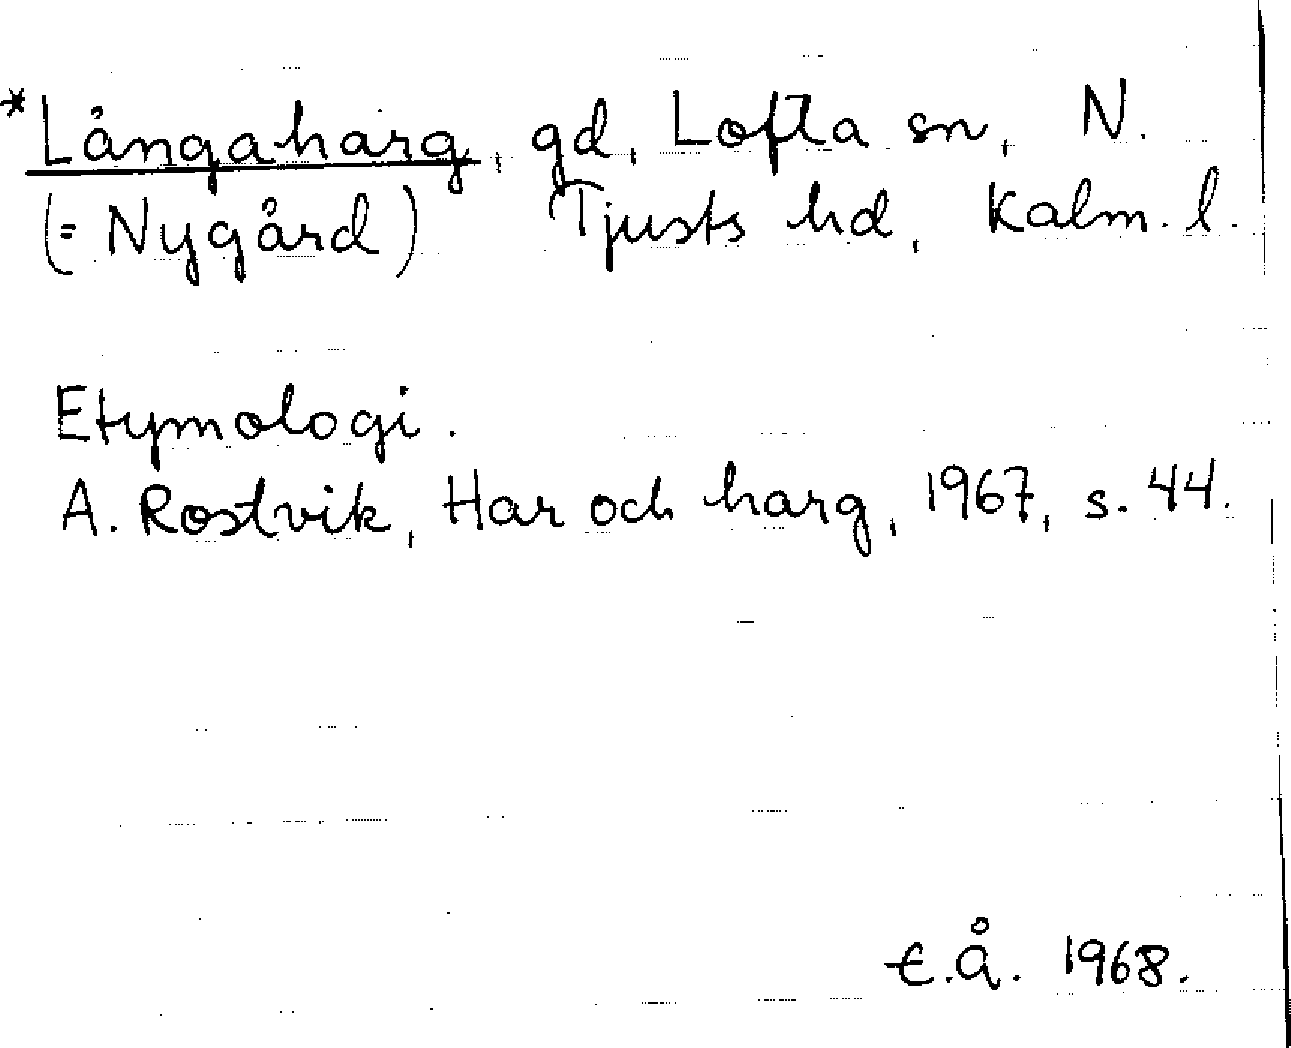 *Långaharg, gd, Lofta sn, N.
(= Nygård) Tjusts hd, Kalm. l.
Etymologi.
A. Rostvik, Har och harg, 1967, s. 44.
E.Å. 1968.